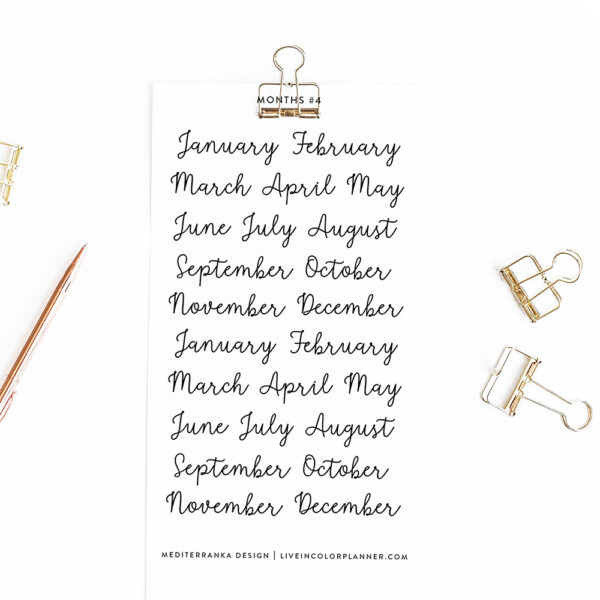 MONTHS #4
January February
March April May
June July August
September October
November December
January February
March April May
June July August
September October
November December
MEDITERRANKA DESIGN | LIVEINCOLORPLANNER.COM